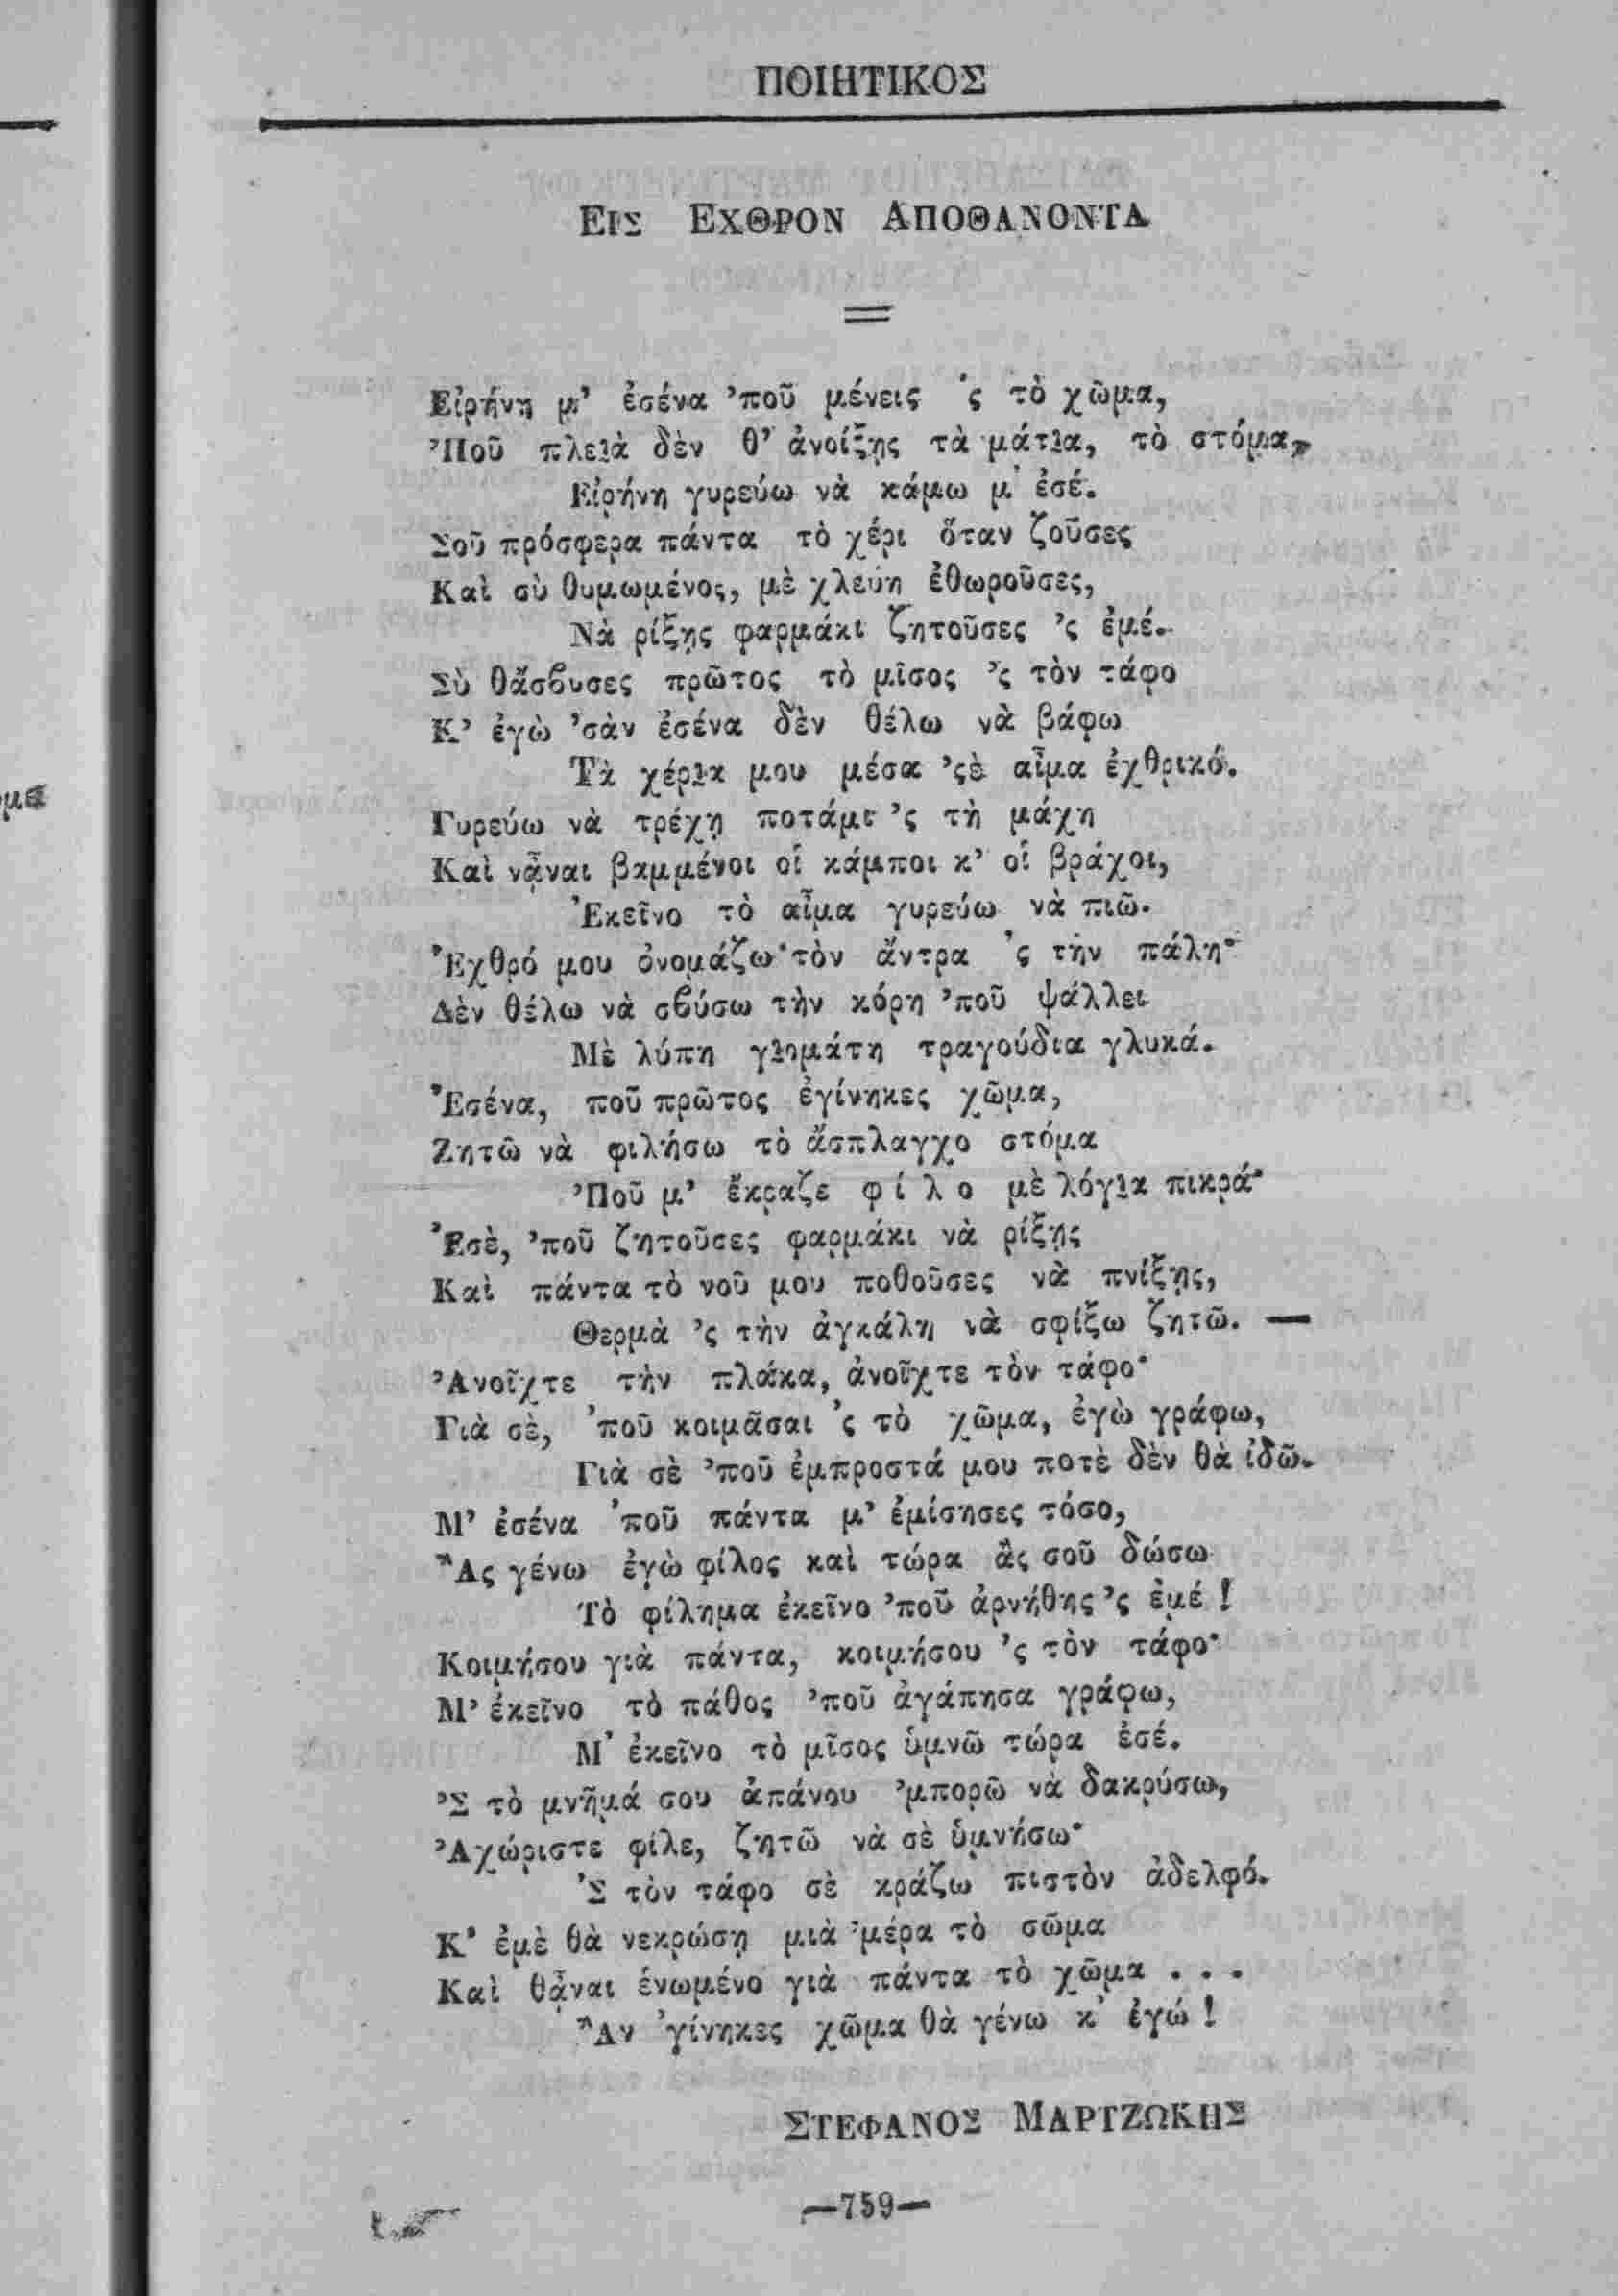 ΠΟΙΗΤΙΚΟΣ
ΕΙΣ ΕΧΘΡΟΝ ΑΠΟΘΑΝΟΝΤΑ
Εἰρήνη μ’ ἐσένα ’ποῦ μένεις ’ς τὸ χῶμα,
’Ποῦ πλειὰ δὲν θ’ ἀνοίξῃς τὰ μάτια, τὸ στόμα,
Εἰρήνη γυρεύω νὰ κάμω μ’ ἐσέ.
Σοῦ πρόσφερα πάντα τὸ χέρι ὅταν ζοῦσες
Καὶ σὺ θυμωμένος, μὲ χλεύη ἐθωροῦσες,
Νὰ ρίξῃς φαρμάκι ζητοῦσες ’ς ἐμέ.
Σὺ θἄσβυσες πρῶτος τὸ μῖσος ’ς τὸν τάφο
Κ’ ἐγὼ ’σὰν ἐσένα δὲν θέλω νὰ βάφω
Τὰ χέρια μου μέσα ’ςὲ αἷμα ἐχθρικό.
Γυρεύω νὰ τρέχῃ ποτάμι ’ς τὴ μάχη
Καὶ νᾆναι βαμμένοι οἱ κάμποι κ’ οἱ βράχοι,
Ἐκεῖνο τὸ αἷμα γυρεύω νὰ πιῶ.
Ἐχθρό μου ὀνομάζω τὸν ἄντρα ’ς τὴν πάλη·
Δὲν θέλω νὰ σβύσω τὴν κόρη ’ποῦ ψάλλει
Μὲ λύπη γιομάτη τραγούδια γλυκά.
Ἐσένα, ποῦ πρῶτος ἐγίνηκες χῶμα,
Ζητῶ νὰ φιλήσω τὸ ἄσπλαγχο στόμα
’Ποῦ μ’ ἔκραζε φ ί λ ο μὲ λόγια πικρά·
Ἐσὲ, ’ποῦ ζητοῦσες φαρμάκι νὰ ρίξῃς
Καὶ πάντα τὸ νοῦ μου ποθοῦσες νὰ πνίξῃς,
Θερμὰ ’ς τὴν ἀγκάλη νὰ σφίξω ζητῶ. —
Ἀνοῖχτε τὴν πλάκα, ἀνοῖχτε τὸν τάφο·
Γιὰ σὲ, ’ποῦ κοιμᾶσαι ’ς τὸ χῶμα, ἐγὼ γράφω,
Γιὰ σὲ ’ποῦ ἐμπροστά μου ποτὲ δὲν θὰ ἰδῶ.
Μ’ ἐσένα ’ποῦ πάντα μ’ ἐμίσησες τόσο,
Ἂς γένω ἐγὼ φίλος καὶ τώρα ἂς σοῦ δώσω
Τὸ φίλημα ἐκεῖνο ’ποῦ ἀρνήθης ’ς ἐμέ !
Κοιμήσου γιὰ πάντα, κοιμήσου ’ς τὸν τάφο·
Μ’ ἐκεῖνο τὸ πάθος ’ποῦ ἀγάπησα γράφω,
Μ’ ἐκεῖνο τὸ μῖσος ὑμνῶ τώρα ἐσέ.
’Σ τὸ μνῆμά σου ἀπάνου ’μπορῶ νὰ δακρύσω,
Ἀχώριστε φίλε, ζητῶ νὰ σὲ ὑμνήσω·
’Σ τὸν τάφο σὲ κράζω πιστὸν ἀδελφό.
Κ’ ἐμὲ θὰ νεκρώσῃ μιὰ ’μέρα τὸ σῶμα
Καὶ θᾆναι ἑνωμένο γιὰ πάντα τὸ χῶμα . . .
Ἂν ’γίνηκες χῶμα θὰ γένω κ’ ἐγώ !
ΣΤΕΦΑΝΟΣ ΜΑΡΤΖΩΚΗΣ
—759—